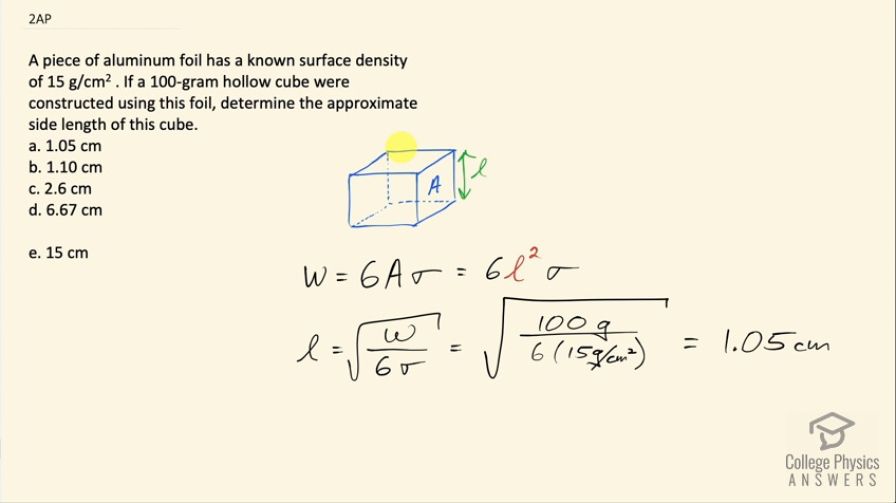 2AP
A piece of aluminum foil has a known surface density
of 15 g/cm² . If a 100-gram hollow cube were
constructed using this foil, determine the approximate
side length of this cube.
a. 1.05 cm
b. 1.10 cm
c. 2.6 cm
d. 6.67 cm
e. 15 cm
A l
W = 6Aσ = 6l²σ
l = √(w/6σ) = √(100 g/6(15g/cm²)) = 1.05 cm
College Physics
ANSWERS